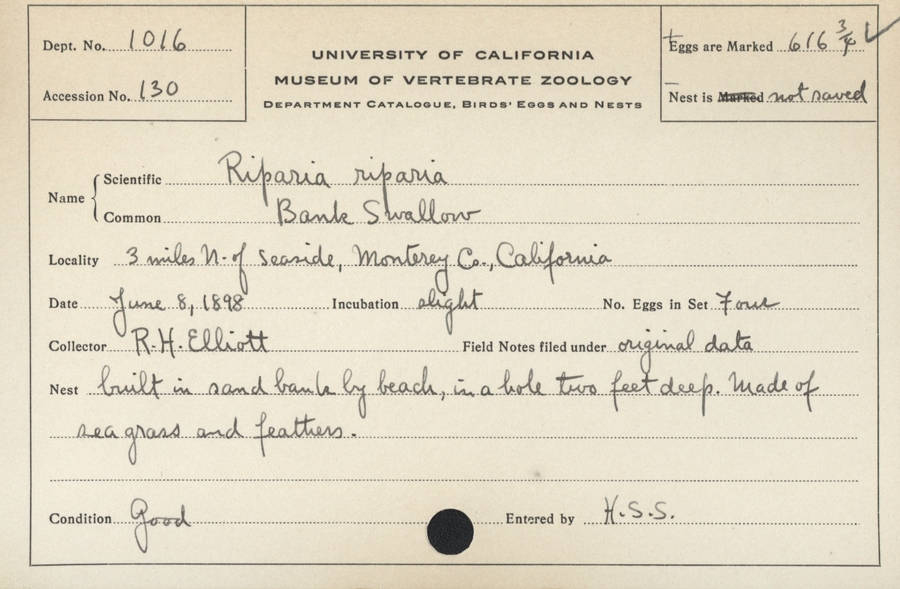 Dept. No. 1016
Accession No. 130
UNIVERSITY OF CALIFORNIA
MUSEUM OF VERTEBRATE ZOOLOGY
DEPARTMENT CATALOGUE, BIRDS' EGGS AND NESTS
Eggs are Marked 616 3/4 ✓
Nest is Marked not saved
Name
Scientific Riparia riparia
Common Bank Swallow
Locality 3 miles N. of Seaside, Monterey Co., California
Date June 8, 1898 Incubation slight No. Eggs in Set Four
Collector R.H. Elliott Field Notes filed under original data
Nest built in sand bank by beach, in a hole two feet deep. Made of
sea grass and feathers.
Condition Good Entered by H.S.S.